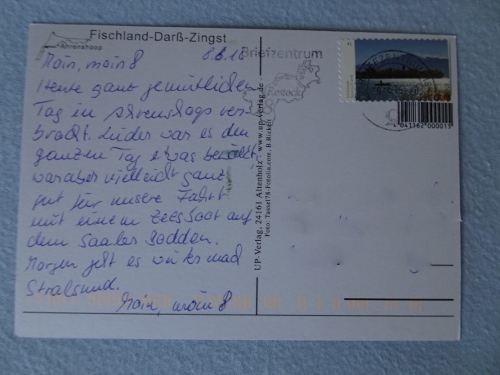 Fischland-Darß-Zingst
Ahrenshoop
8.6.18
Briefzentrum
Moin, moin 8
Heute ganz gemütlichen
Tag in Ahrenshoop ver
bracht. Leider war es den
ganzen Tag etwas bewölkt
war aber vielleicht ganz
gut für unsere Fahrt
mit einem Zeesboot auf
dem Saaler Bodden.
Morgen geht es weiter nach
Stralsund.
Moin, moin 8
UP-Verlag, 24161 Altenholz · www.up-verlag.de ·
Foto: Tassel78-Fotolia.com, B.Rickert
Rostock
4 041162 000015